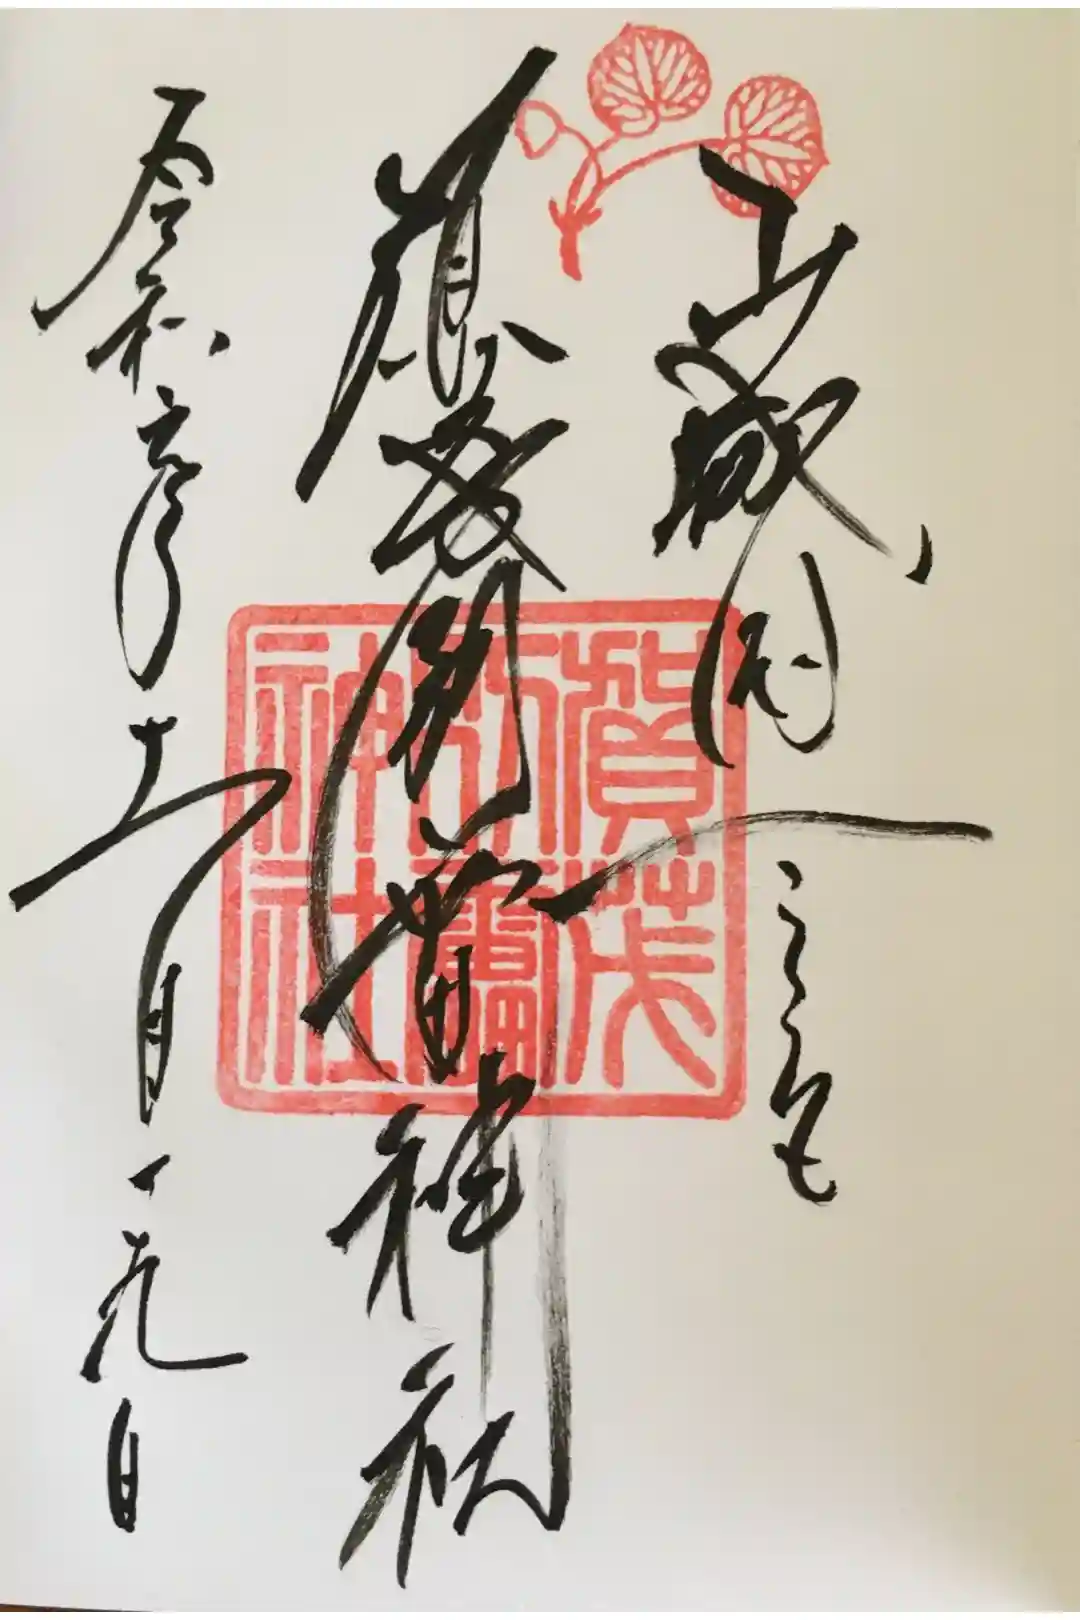 山城国一之宮
賀茂別雷神社
令和元年十一月一九日
賀茂
別雷
神社